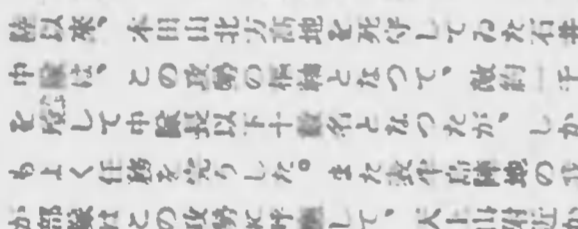 陸以來、本田山北方高地を死守してゐた石井
中隊は、この攻勢の となつて、敵約一千
を して中隊長以下十數名となつたが、しか
もよく任務を完うした。また 陣地の
部隊はこの攻勢に呼應して、 山附近か